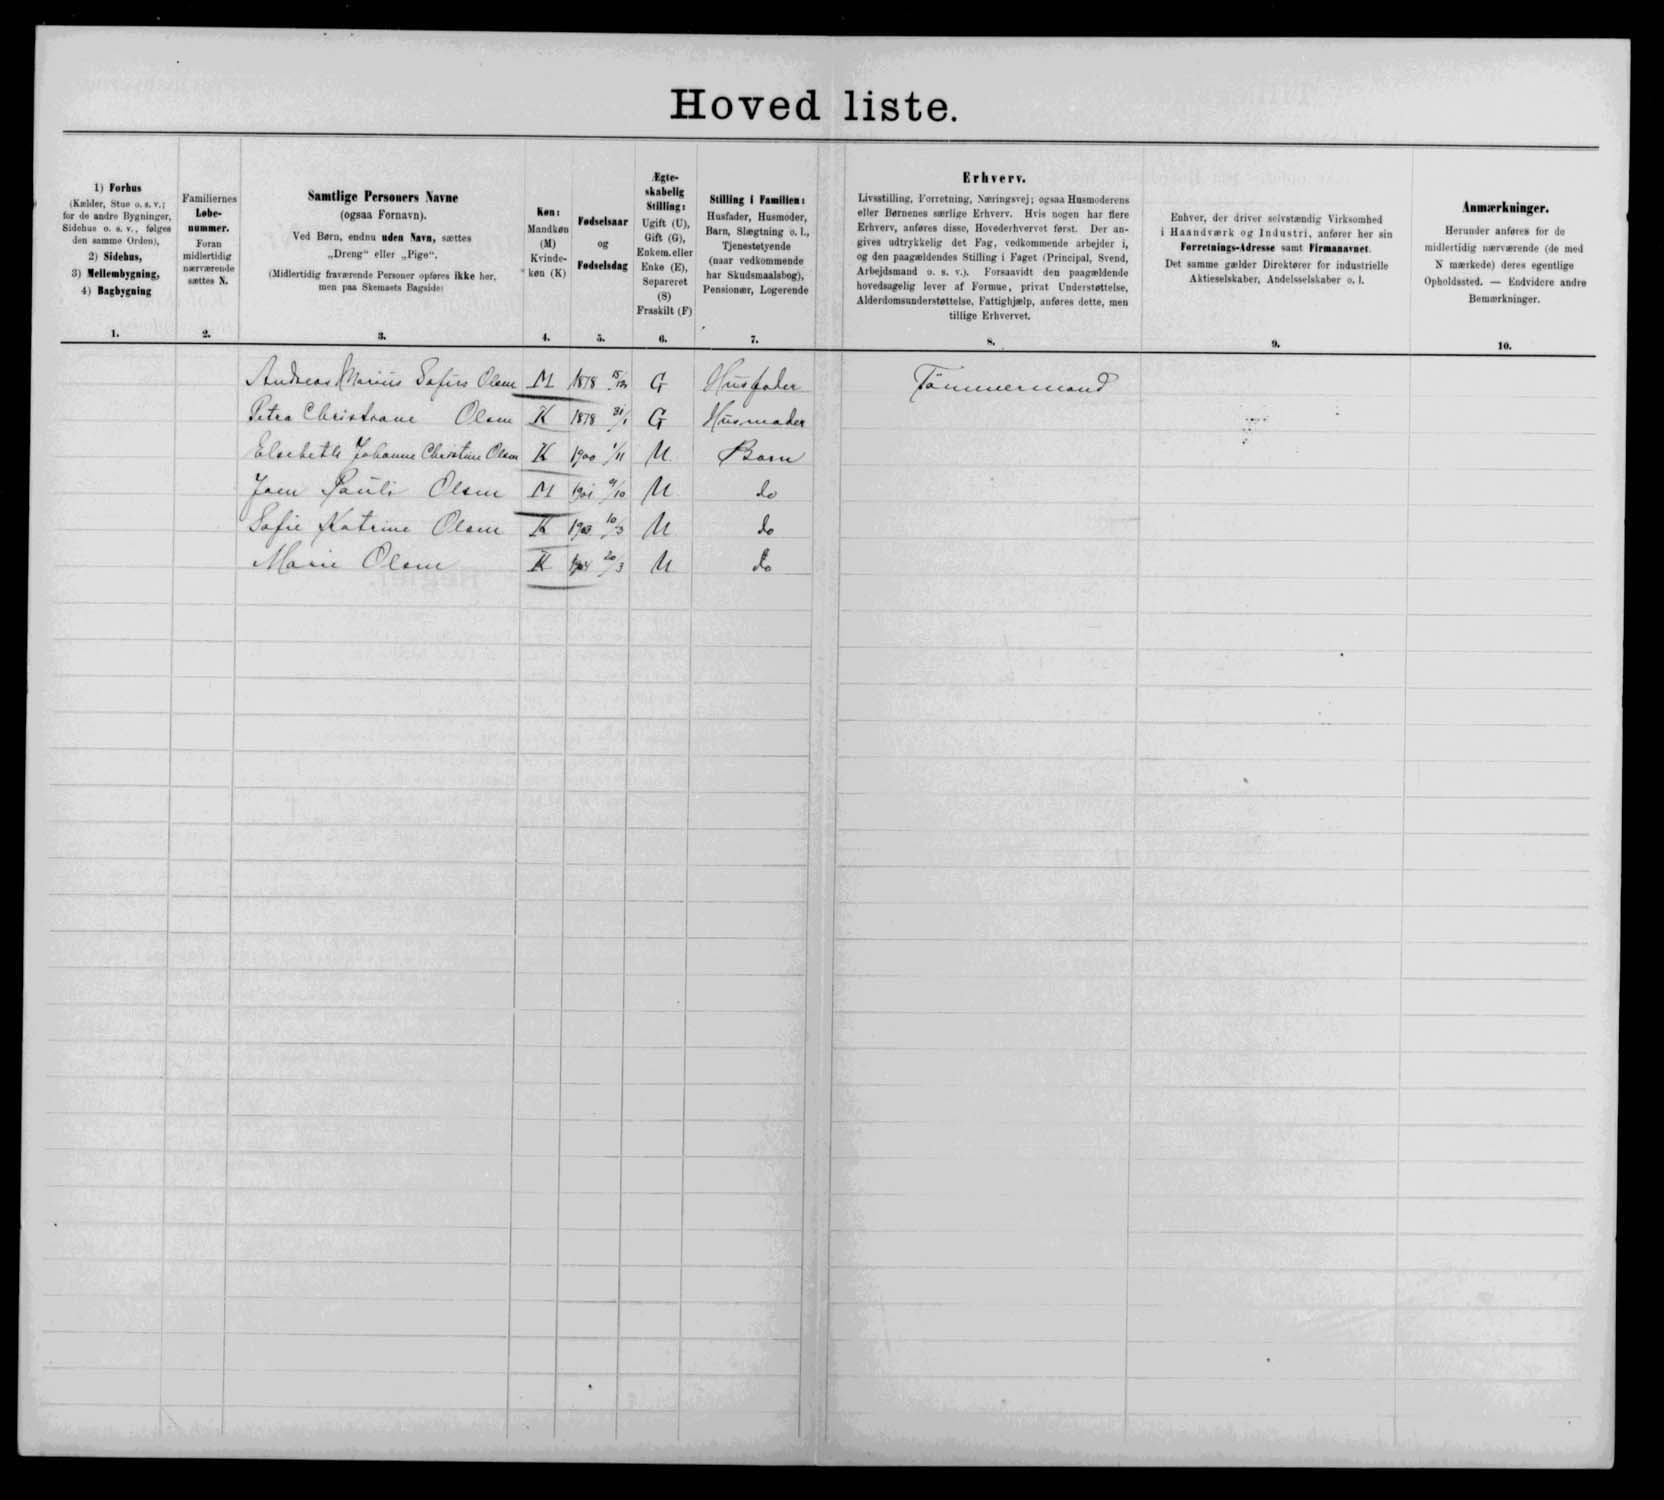 Hoved liste.
1) Forhus
(Kælder, Stue o. s. v.;
for de andre Bygninger,
Sidehus o. s. v., følges
den samme Orden),
2) Sidehus,
3) Mellembygning,
4) Bagbygning
1.
Familiernes
Løbe-
nummer.
Foran
midlertidig
nærværende
sættes N.
2.
Samtlige Personers Navne
(ogsaa Fornavn).
Ved Børn, endnu uden Navn, sættes
„Dreng“ eller „Pige“.
(Midlertidig fraværende Personer opføres ikke her,
men paa Skemaets Bagside)
3.
Køn:
Mandkøn
(M)
Kvinde-
køn (K)
4.
Fødselsaar
og
Fødselsdag
5.
Ægte-
skabelig
Stilling:
Ugift (U),
Gift (G),
Enkem. eller
Enke (E),
Separeret
(S)
Fraskilt (F)
6.
Stilling i Familien:
Husfader, Husmoder,
Barn, Slægtning o. l.,
Tjenestetyende
(naar vedkommende
har Skudsmaalsbog),
Pensionær, Logerende
7.
Erhverv.
Livsstilling, Forretning, Næringsvej; ogsaa Husmoderens
eller Børnenes særlige Erhverv. Hvis nogen har flere
Erhverv, anføres disse, Hovederhvervet først. Der an-
gives udtrykkelig det Fag, vedkommende arbejder i,
og den paagældendes Stilling i Faget (Principal, Svend,
Arbejdsmand o. s. v.). Forsaavidt den paagældende
hovedsagelig lever af Formue, privat Understøttelse,
Alderdomsunderstøttelse, Fattighjælp, anføres dette, men
tillige Erhvervet.
8.
Enhver, der driver selvstændig Virksomhed
i Haandværk og Industri, anfører her sin
Forretnings-Adresse samt Firmanavnet.
Det samme gælder Direktører for industrielle
Aktieselskaber, Andelsselskaber o. l.
9.
Anmærkninger.
Herunder anføres for de
midlertidig nærværende (de med
N mærkede) deres egentlige
Opholdssted. — Endvidere andre
Bemærkninger.
10.
Andreas Marius Sofus Olsen M 1878 15/12 G Husfader Tömmermand
Petra Christiane Olsen K 1878 31/1 G Husmoder
Elsebeth Johanne Christine Olsen K 1900 1/11 U Barn
Joen Pauli Olsen M 1901 9/10 U do
Sofie Katrine Olsen K 1903 10/3 U do
Marie Olsen K 1904 20/3 U do